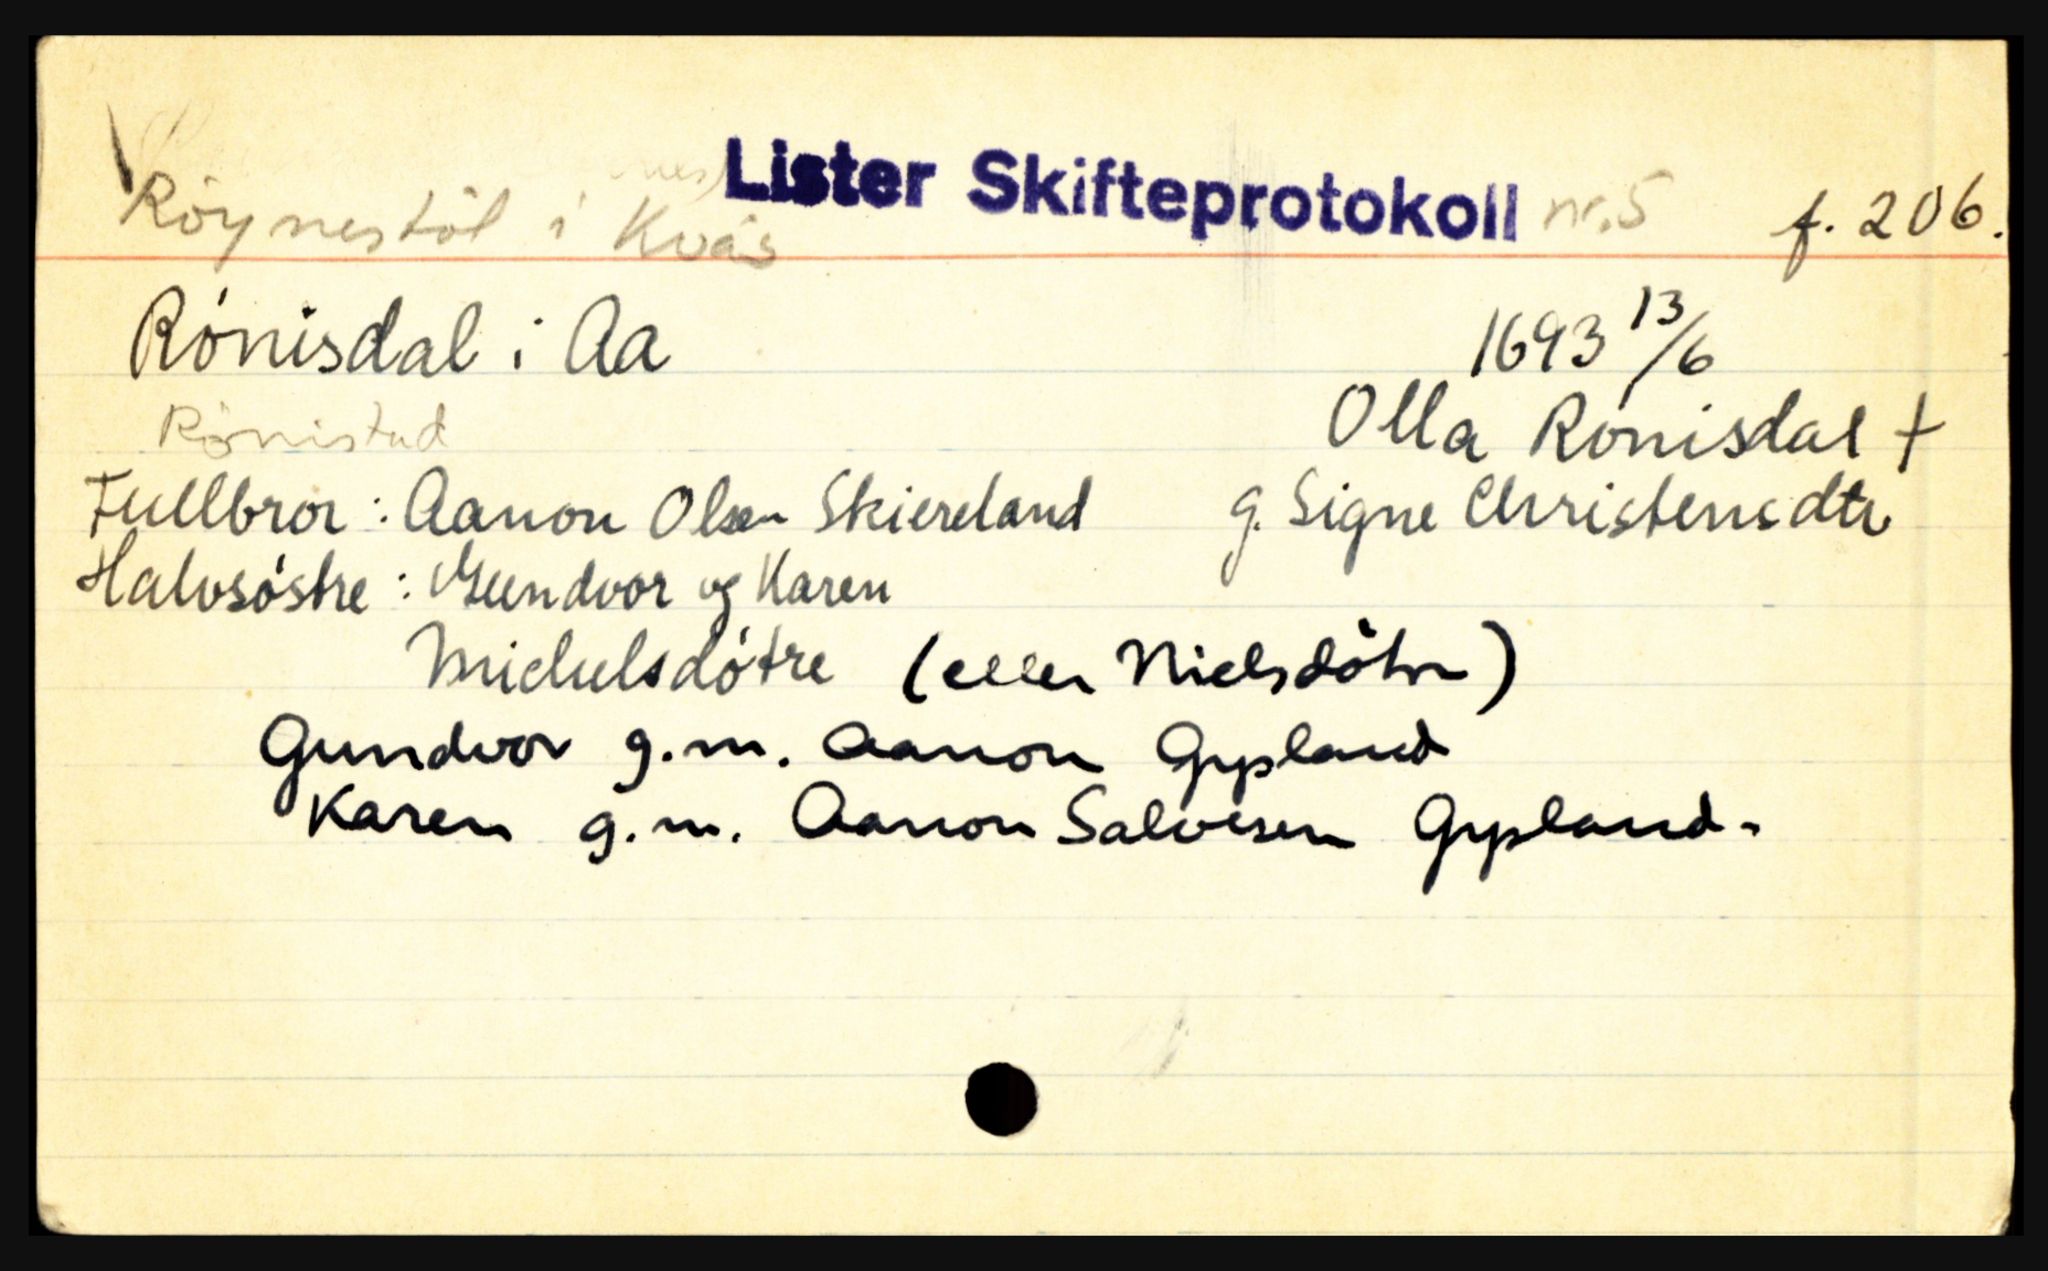 Lister Skifteprotokoll nr. 5 f. 206.
Röynestöl i Kvås
Rónisdal i Aa 1693 13/6
Rönistad Olla Ronisdal †
Fullbror: Aanon Olsen Skiereland g. Signe Christensdtr
Halvsóstre: Gundvor og Karen
Michelsdótre (eller Nielsdötre)
Gundvor g.m. Aanon Gypland
Karen g.m. Aanon Salvesen Gypland.